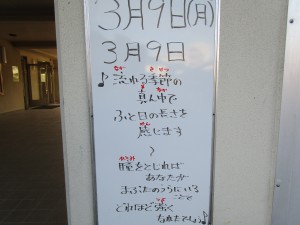 3月9日(月)
3月9日
♪流れる季節の
真ん中で
ふと日の長さを
感じます
瞳をとじれば
あなたが
まぶたのうらにいる
ことで
どれほど強く
なれたでしょう♪